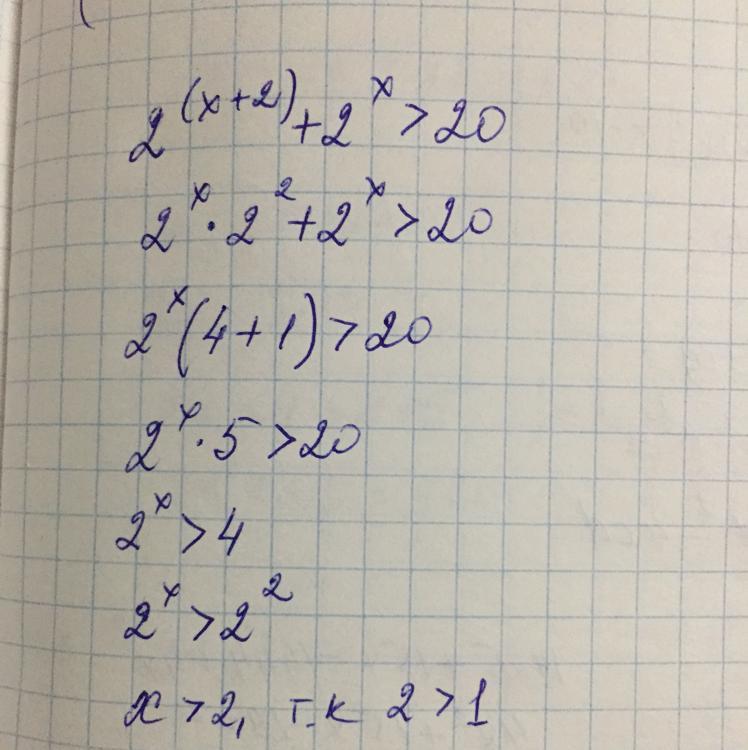 2^(x+2) + 2^x > 20
2^x · 2^2 + 2^x > 20
2^x (4 + 1) > 20
2^x · 5 > 20
2^x > 4
2^x > 2^2
x > 2, т.к 2 > 1